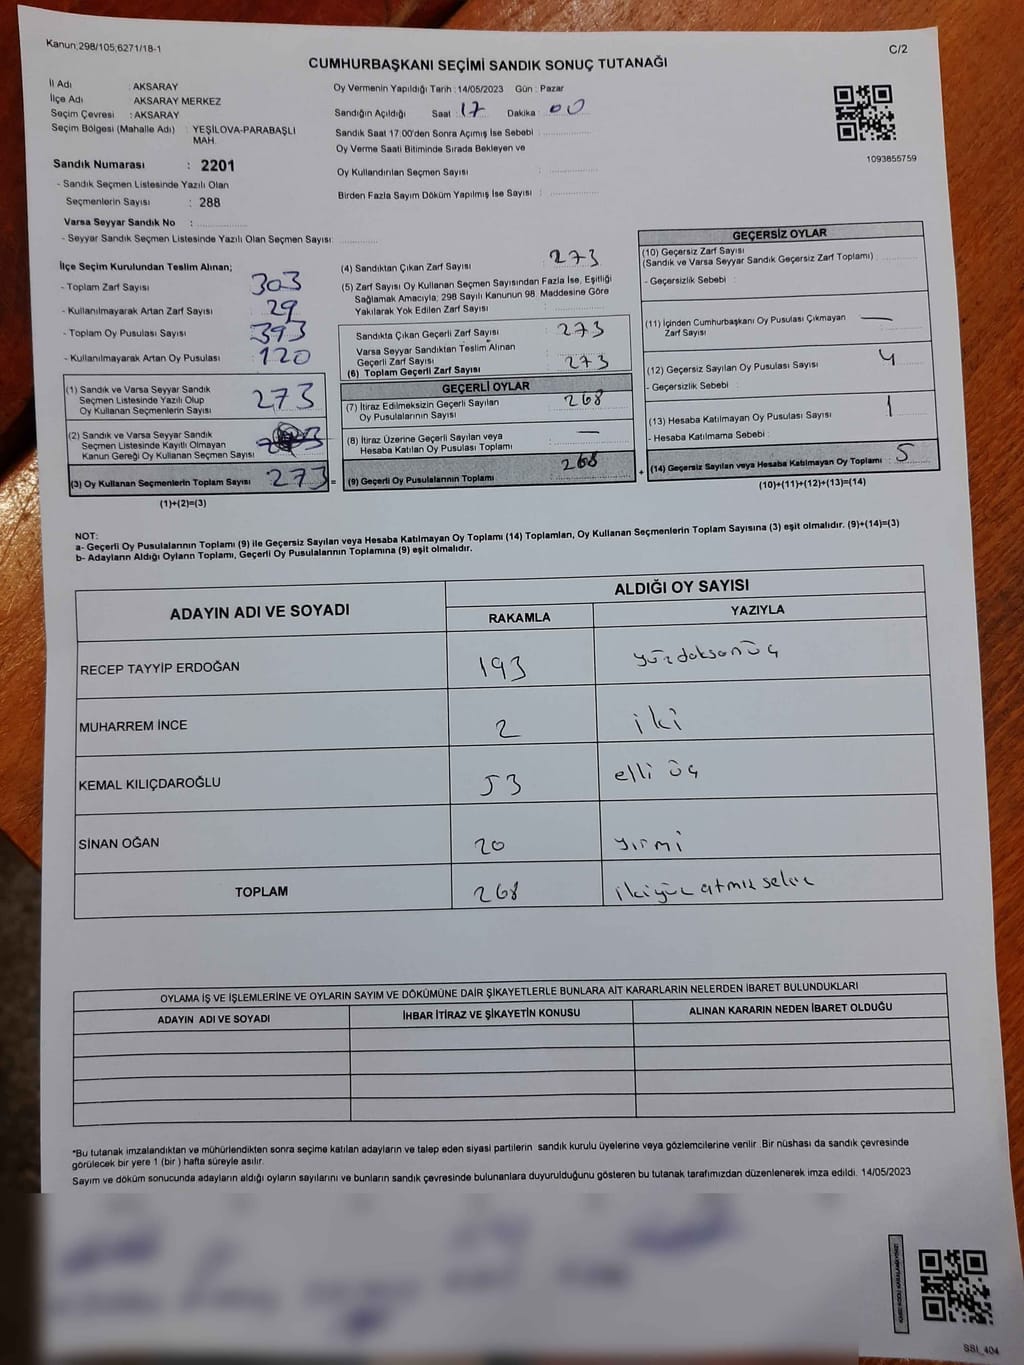 Kanun;298/105;6271/18-1
C/2
CUMHURBAŞKANI SEÇİMİ SANDIK SONUÇ TUTANAĞI
İl Adı : AKSARAY
İlçe Adı : AKSARAY MERKEZ
Seçim Çevresi : AKSARAY
Seçim Bölgesi (Mahalle Adı) : YEŞİLOVA-PARABAŞLI
MAH.
Sandık Numarası : 2201
- Sandık Seçmen Listesinde Yazılı Olan
Seçmenlerin Sayısı : 288
Varsa Seyyar Sandık No :
- Seyyar Sandık Seçmen Listesinde Yazılı Olan Seçmen Sayısı:
Oy Vermenin Yapıldığı Tarih : 14/05/2023 Gün : Pazar
Sandığın Açıldığı Saat : 17 Dakika : 00
Sandık Saat 17:00'den Sonra Açımış İse Sebebi :
Oy Verme Saati Bitiminde Sırada Bekleyen ve
Oy Kullandırılan Seçmen Sayısı :
Birden Fazla Sayım Döküm Yapılmış İse Sayısı :
1093855759
İlçe Seçim Kurulundan Teslim Alınan;
- Toplam Zarf Sayısı 303
- Kullanılmayarak Artan Zarf Sayısı 29
- Toplam Oy Pusulası Sayısı 393
- Kullanılmayarak Artan Oy Pusulası 120
(1) Sandık ve Varsa Seyyar Sandık
Seçmen Listesinde Yazılı Olup
Oy Kullanan Seçmenlerin Sayısı 273
(2) Sandık ve Varsa Seyyar Sandık
Seçmen Listesinde Kayıtlı Olmayan
Kanun Gereği Oy Kullanan Seçmen Sayısı
(3) Oy Kullanan Seçmenlerin Toplam Sayısı 273 =
(1)+(2)=(3)
(4) Sandıktan Çıkan Zarf Sayısı 273
(5) Zarf Sayısı Oy Kullanan Seçmen Sayısından Fazla İse, Eşitliği
Sağlamak Amacıyla; 298 Sayılı Kanunun 98. Maddesine Göre
Yakılarak Yok Edilen Zarf Sayısı :
Sandıkta Çıkan Geçerli Zarf Sayısı 273
Varsa Seyyar Sandıktan Teslim Alınan
Geçerli Zarf Sayısı
(6) Toplam Geçerli Zarf Sayısı 273
GEÇERLİ OYLAR
(7) İtiraz Edilmeksizin Geçerli Sayılan
Oy Pusulalarının Sayısı 268
(8) İtiraz Üzerine Geçerli Sayılan veya
Hesaba Katılan Oy Pusulası Toplamı —
(9) Geçerli Oy Pusulalarının Toplamı 268 +
GEÇERSİZ OYLAR
(10) Geçersiz Zarf Sayısı
(Sandık ve Varsa Seyyar Sandık Geçersiz Zarf Toplamı) :
- Geçersizlik Sebebi :
(11) İçinden Cumhurbaşkanı Oy Pusulası Çıkmayan
Zarf Sayısı —
(12) Geçersiz Sayılan Oy Pusulası Sayısı 4
- Geçersizlik Sebebi :
(13) Hesaba Katılmayan Oy Pusulası Sayısı 1
- Hesaba Katılmama Sebebi :
(14) Geçersiz Sayılan veya Hesaba Katılmayan Oy Toplamı : 5
(10)+(11)+(12)+(13)=(14)
NOT:
a- Geçerli Oy Pusulalarının Toplamı (9) ile Geçersiz Sayılan veya Hesaba Katılmayan Oy Toplamı (14) Toplamları, Oy Kullanan Seçmenlerin Toplam Sayısına (3) eşit olmalıdır. (9)+(14)=(3)
b- Adayların Aldığı Oyların Toplamı, Geçerli Oy Pusulalarının Toplamına (9) eşit olmalıdır.
ADAYIN ADI VE SOYADI ALDIĞI OY SAYISI
RAKAMLA YAZIYLA
RECEP TAYYİP ERDOĞAN 193 yüzdoksanüç
MUHARREM İNCE 2 iki
KEMAL KILIÇDAROĞLU 53 elli üç
SİNAN OĞAN 20 yirmi
TOPLAM 268 ikiyüz atmış sekiz
OYLAMA İŞ VE İŞLEMLERİNE VE OYLARIN SAYIM VE DÖKÜMÜNE DAİR ŞİKAYETLERLE BUNLARA AİT KARARLARIN NELERDEN İBARET BULUNDUKLARI
ADAYIN ADI VE SOYADI İHBAR İTİRAZ VE ŞİKAYETİN KONUSU ALINAN KARARIN NEDEN İBARET OLDUĞU
*Bu tutanak imzalandıktan ve mühürlendikten sonra seçime katılan adayların ve talep eden siyasi partilerin sandık kurulu üyelerine veya gözlemcilerine verilir. Bir nüshası da sandık çevresinde
görülecek bir yere 1 (bir ) hafta süreyle asılır.
Sayım ve döküm sonucunda adayların aldığı oyların sayılarını ve bunların sandık çevresinde bulunanlara duyurulduğunu gösteren bu tutanak tarafımızdan düzenlenerek imza edildi. 14/05/2023
SSI_404